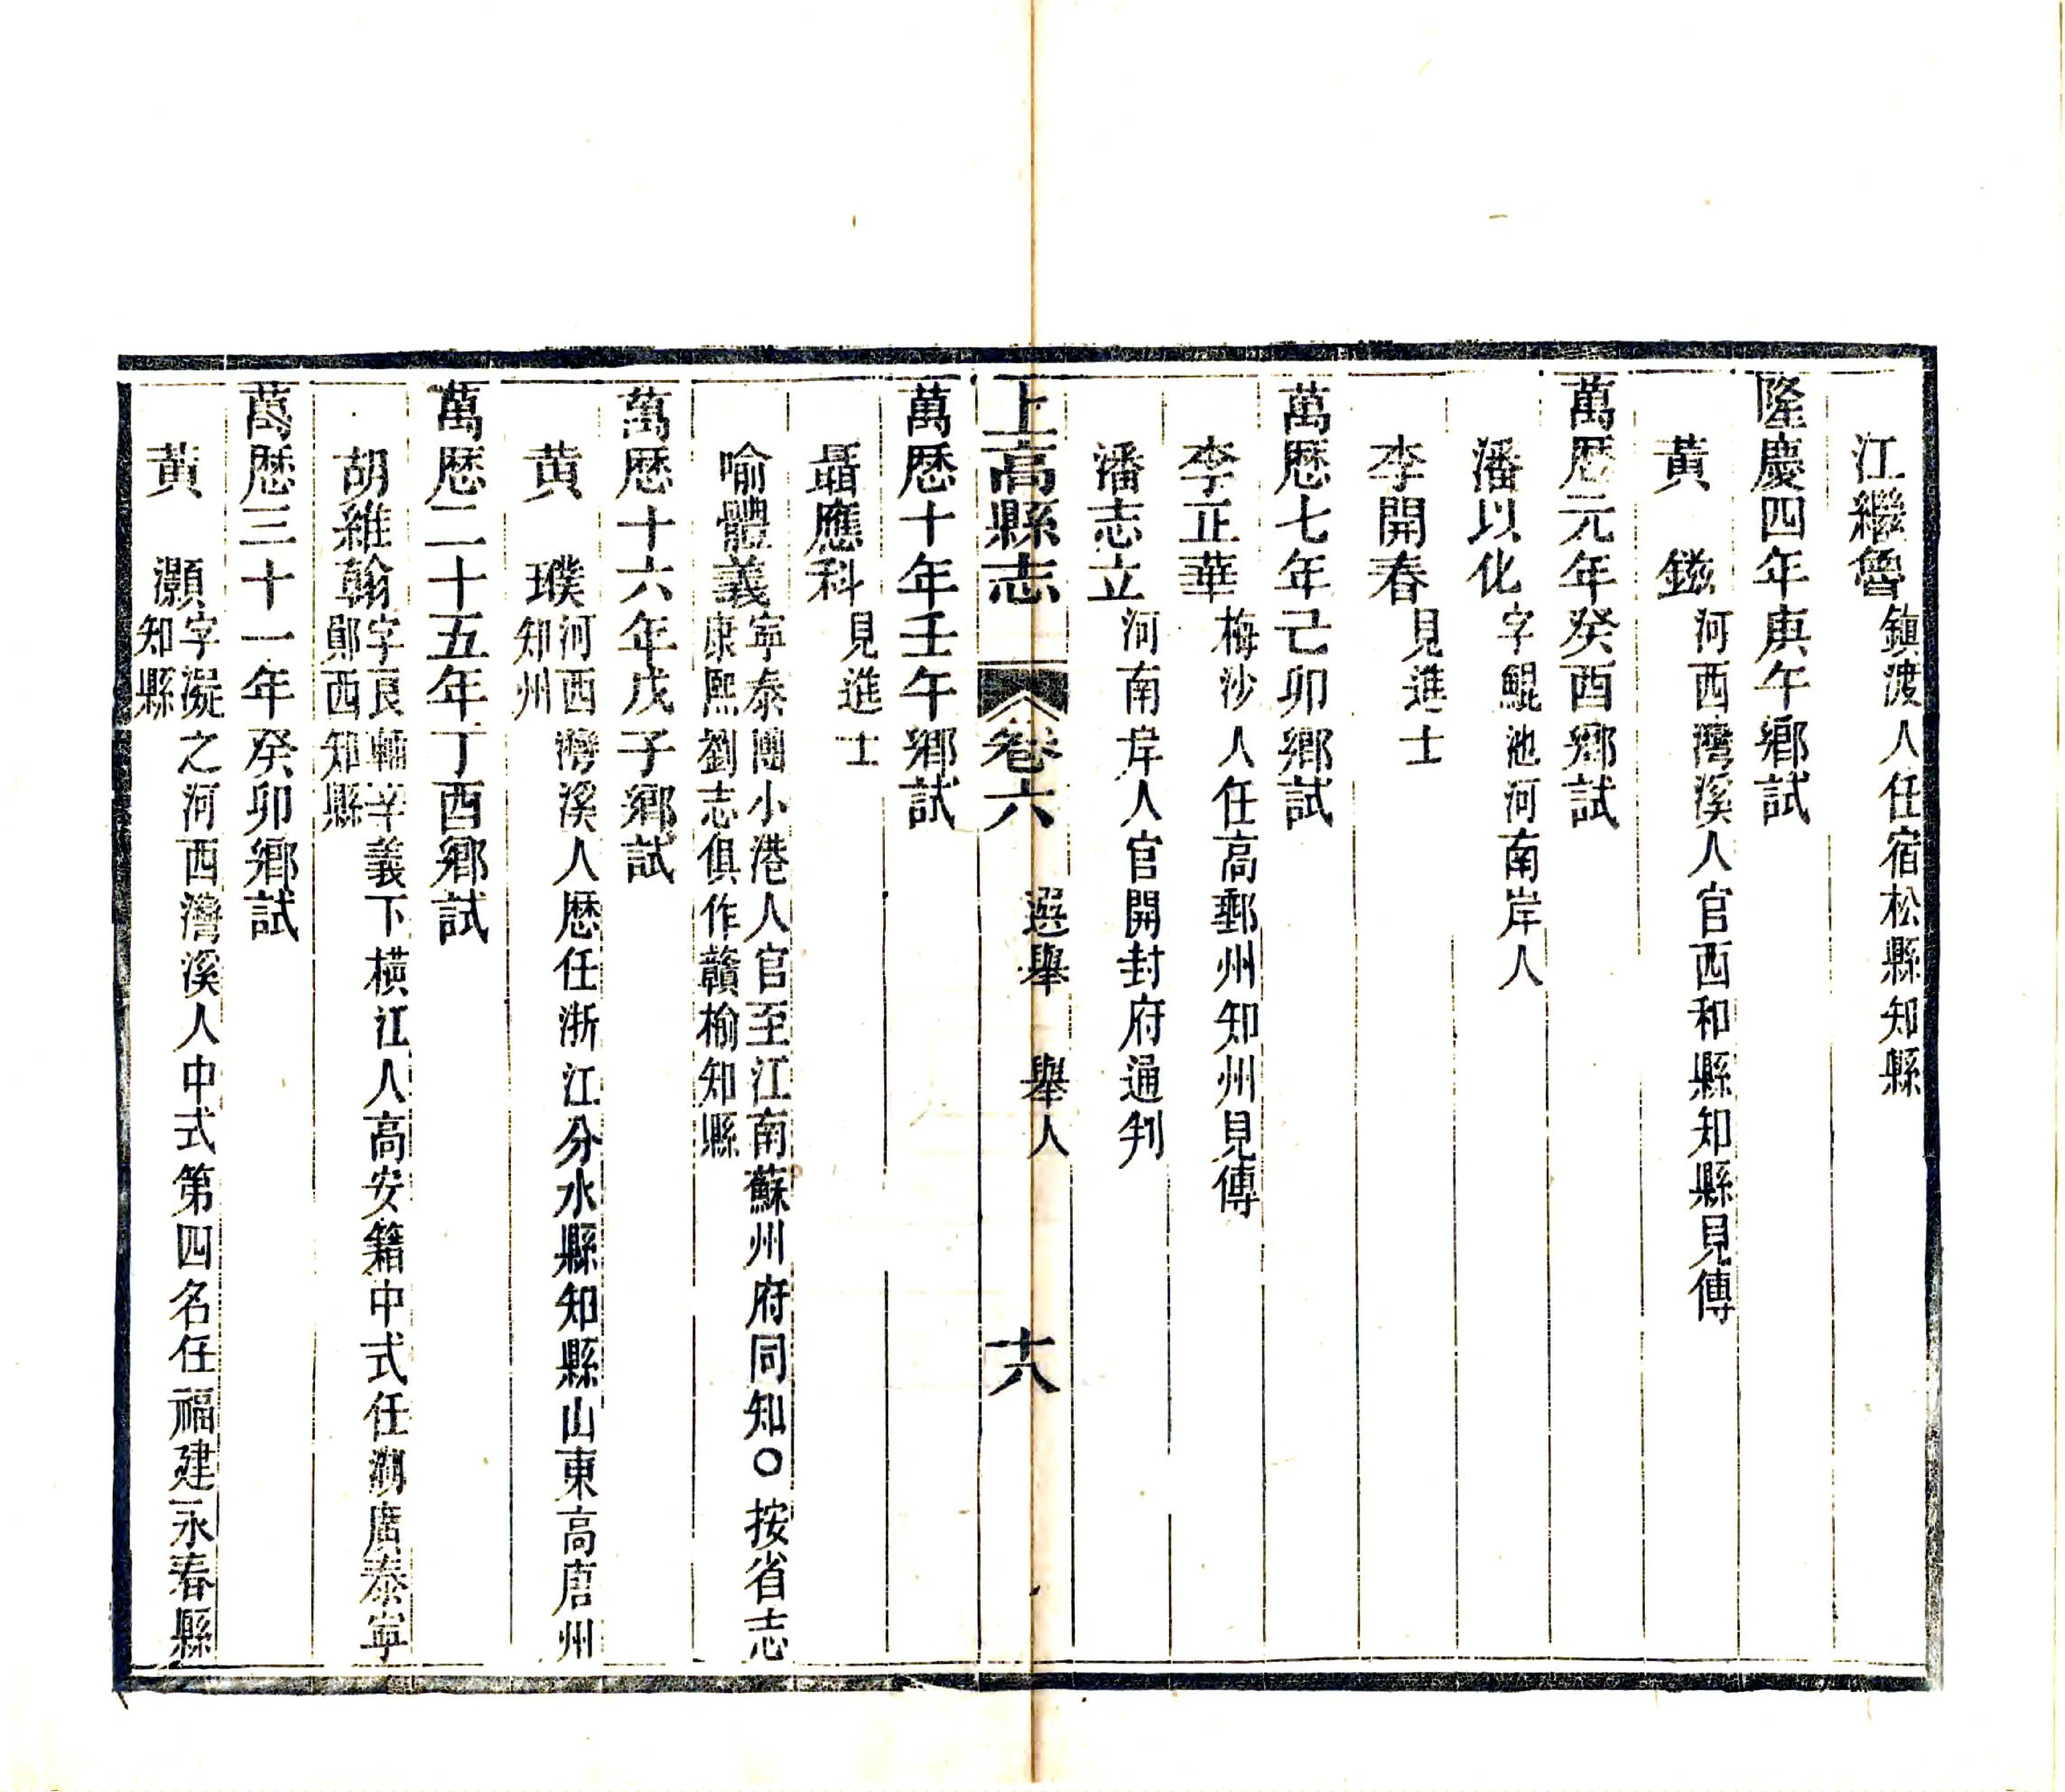 江繼魯鎮渡人任宿松縣知縣
隆慶四年庚午鄉試
黃鎡河西灣溪人官西和縣知縣見傳
萬歷元年癸酉鄉試
潘以化字鯤池河南岸人
李開春見進士
萬歷七年己卯鄉試
李正華梅沙人任高郵州知州見傳
潘志立河南岸人官開封府通判
上高縣志 卷六 選舉 舉人 十八
萬歷十年壬午鄉試
聶應科見進士
喻體義寧泰團小港人官至江南蘇州府同知○按省志
康熙劉志俱作贛榆知縣
萬歷十六年戊子鄉試
黃璞河西灣溪人歷任浙江分水縣知縣山東高唐州
知州
萬歷二十五年丁酉鄉試
胡維翰字良輔辛義下橫江人高安籍中式任湖廣泰寧
鄖西知縣
萬歷三十一年癸卯鄉試
黃灝字凝之河西灣溪人中式第四名任福建永春縣
知縣